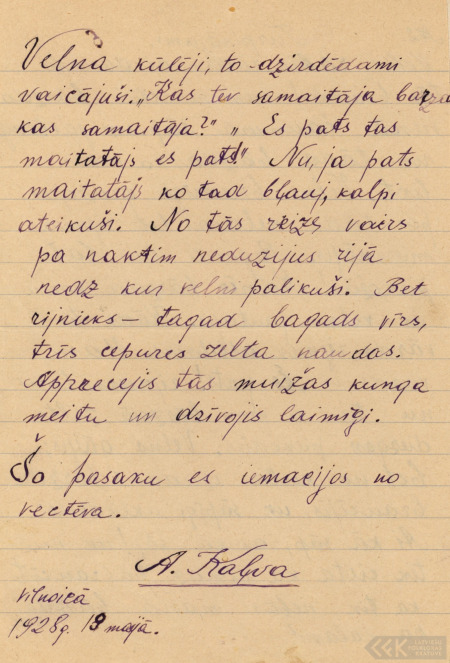 Velna kūlēji, to dzirdēdami
vaicājuši. „Kas tev samaitāja
kas samaitāja?" „ Es pats tas
maitatājs es pats!" Nu, ja pats
maitatājs ko tad bļauj, kalpi
ateikuši. No tās reizes vairs
pa naktīm rijā
nedz kur velni palikuši. Bet
rijnieks – tagad bagads vīrs,
trīs cepures zelta naudas.
Apprecejis tās muižas kunga
meitu un dzīvojis laimīgi.
Šo pasaku es iemacijos no
vectēva.
A. Kalva
1928g. 13 maijā.